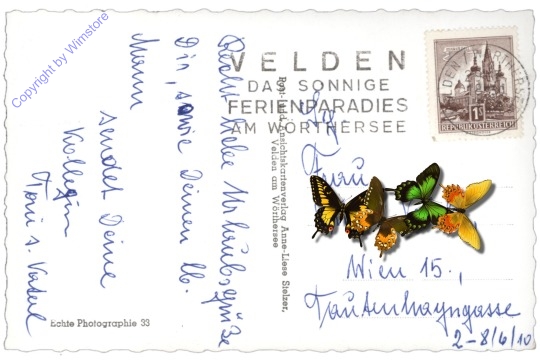 Copyright by Wimstore
VELDEN
DAS SONNIGE
FERIENPARADIES
AM WÖRTHERSEE
1S
REPUBLIK ÖSTERREICH
Recht liebe Urlaubsgrüße
Dir, sowie Deinen lb.
Mann
sendet Deine
Kollegin
Toni
Echte Photographie 33
Post- und Ansichtskartenverlag Anne-Liese Stelzer,
Velden am Wörthersee
Frau
Wien 15.,
Tautenhayngasse
2-8/6/10